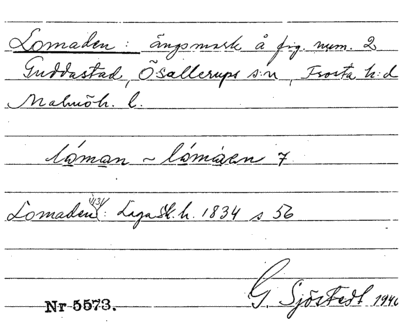 Lomaden: ängsmark å fig. num. 2
Guddastad, Ösallerups s:n, Frosta h:d
Malmöh. l.
låman ~ låmåen 7
Lomaden: Laga sk. h. 1834 s 56
Nr 5573. G. Sjöstedt 1940